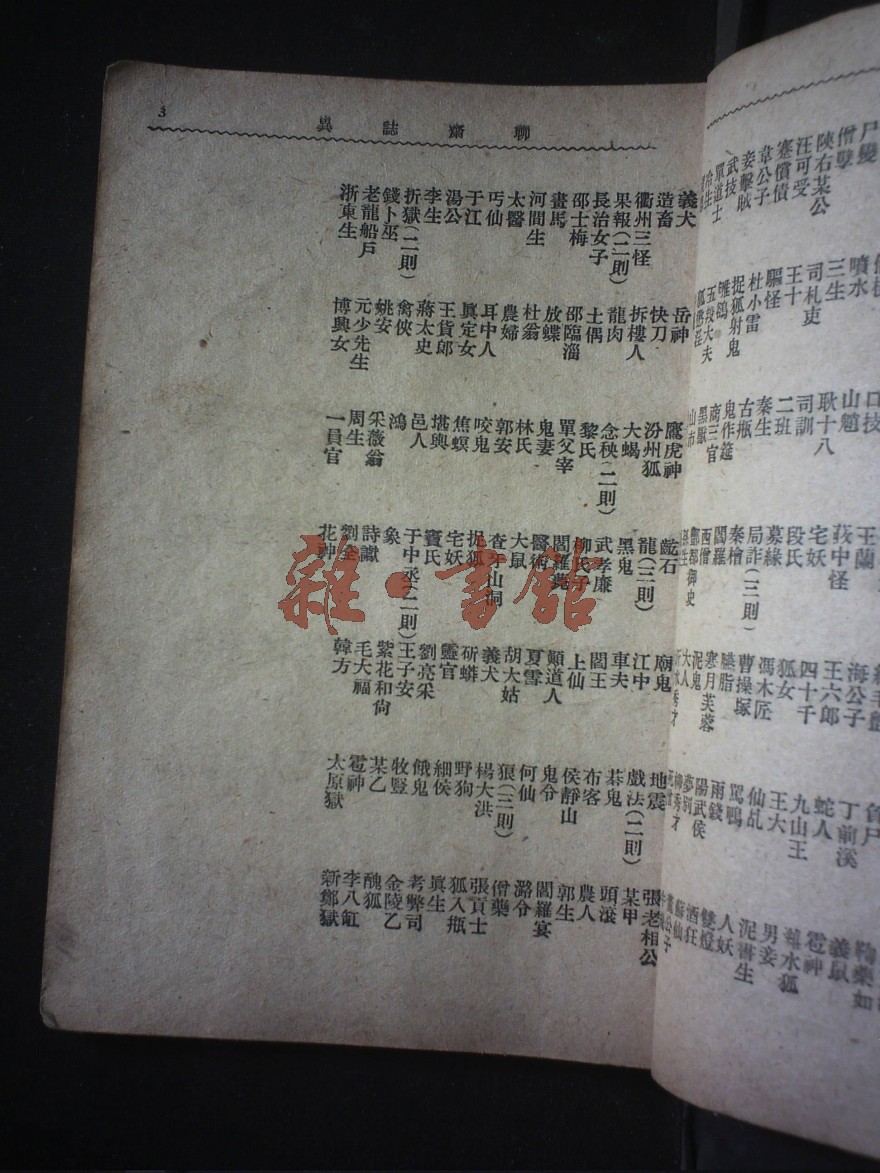 口技 王蘭 海公子 丁前溪 義鼠
尸變 噴水 山魈 莪中怪 王六郎 蛇人 雹神
僧孽 三生 耿十八 宅妖 四十千 九山王 水狐
陝右某公 司札吏 司訓 段氏 狐女 王大 男妾
汪可受 王十 二班 募緣 馮木匠 仙乩 泥書生
蹇償債 驅怪 秦生 局詐(三則) 曹操塚 罵鴨 人妖
韋公子 杜小雷 古瓶 秦檜 臙脂 雨錢 雙燈
妾擊賊 捉狐射鬼 鬼作筵 閻羅 寒月芙蓉 陽武侯 酒狂
武技 鴝鵒 商三官 西僧 泥鬼 夢別 蘇仙
單道士 五羖大夫 黑獸 酆都御史 大人 柳秀才
冷生 狐懲淫 山市 孫生 沂水秀才
聊齋誌異
3
義犬 岳神 鷹虎神 齕石 廟鬼 地震 張老相公
造畜 快刀 汾州狐 龍(三則) 江中 戲法(二則) 某甲
衢州三怪 拆樓人 大蝎 黑鬼 車夫 棊鬼 頭滾
果報(二則) 龍肉 念秧(二則) 武孝廉 閻王 布客 農人
長治女子 土偶 黎氏 柳氏子 上仙 侯靜山 郭生
邵士梅 邵臨淄 單父宰 閻羅薨 顛道人 鬼令 閻羅宴
畫馬 放蝶 鬼妻 醫術 夏雪 何仙 潞令
河間生 杜翁 林氏 大鼠 胡大姑 狼(三則) 僧藥
太醫 農婦 郭安 查牙山洞 義犬 楊大洪 張貢士
丐仙 耳中人 咬鬼 捉狐 斫蟒 野狗 狐入瓶
于江 眞定女 焦螟 宅妖 靈官 細侯 眞生
湯公 王貨郎 堪輿 竇氏 劉亮采 餓鬼 考弊司
李生 蔣太史 邑人 于中丞(二則) 王子安 牧豎 金陵乙
折獄(二則) 禽俠 鴻 象 紫花和尙 某乙 醜狐
錢卜巫 姚安 采薇翁 詩讞 毛大福 雹神 李八缸
老龍船戶 元少先生 周生 劉全 韓方 太原獄 新鄭獄
浙東生 博興女 一員官 花神
雜·書館